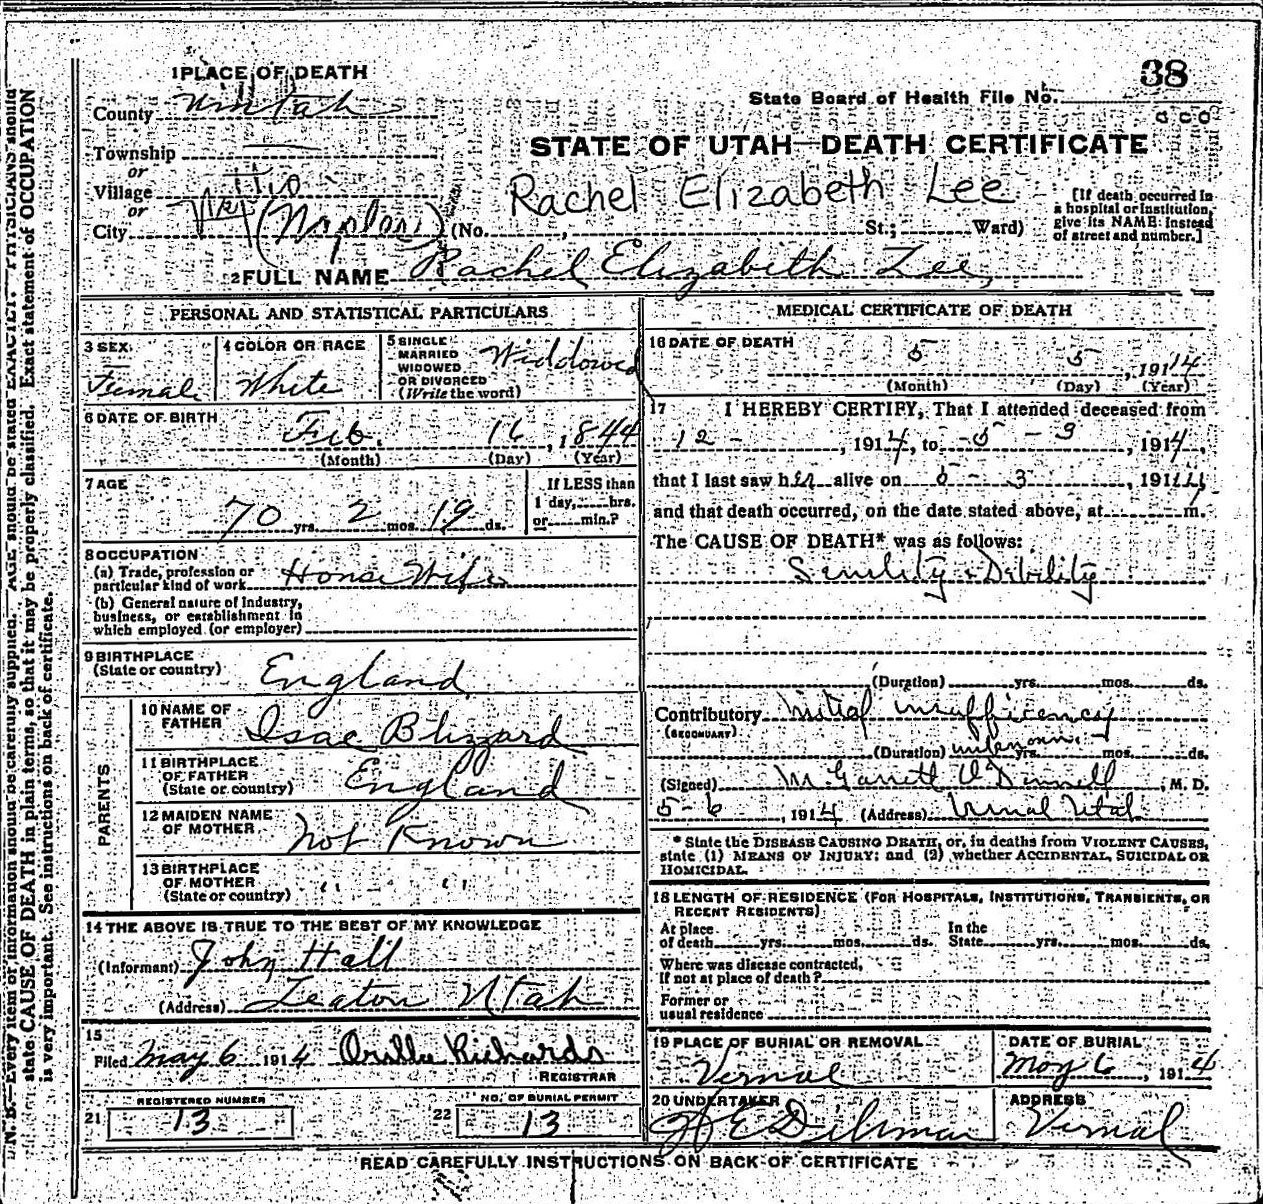 38
1 PLACE OF DEATH
County Uintah
State Board of Health File No.
Township
STATE OF UTAH—DEATH CERTIFICATE
or
Village
Rachel Elizabeth Lee
[If death occurred in a hospital or institution, give its NAME instead of street and number.]
or
City (Naples) (No. , St.; Ward)
2 FULL NAME Rachel Elizabeth Lee
PERSONAL AND STATISTICAL PARTICULARS
3 SEX Female
4 COLOR OR RACE White
5 SINGLE MARRIED WIDOWED OR DIVORCED (Write the word) Widdowed
6 DATE OF BIRTH Feb. 16, 1844
(Month) (Day) (Year)
7 AGE 70 yrs. 2 mos. 19 ds.
If LESS than 1 day, hrs. or min.?
8 OCCUPATION
(a) Trade, profession or particular kind of work House Wife
(b) General nature of industry, business, or establishment in which employed (or employer)
9 BIRTHPLACE (State or country) England
PARENTS
10 NAME OF FATHER Isac Blizzard
11 BIRTHPLACE OF FATHER (State or country) England
12 MAIDEN NAME OF MOTHER Not Known
13 BIRTHPLACE OF MOTHER (State or country) " "
14 THE ABOVE IS TRUE TO THE BEST OF MY KNOWLEDGE
(Informant) John Hall
(Address) Leaton Utah
15
Filed May 6 1914 Orilla Richards
REGISTRAR
21 REGISTERED NUMBER 13
22 NO. OF BURIAL PERMIT 13
MEDICAL CERTIFICATE OF DEATH
16 DATE OF DEATH 5 5, 1914
(Month) (Day) (Year)
17 I HEREBY CERTIFY, That I attended deceased from
12 - , 1914, to 5 - 3, 1914,
that I last saw her alive on 5 - 3, 1914
and that death occurred, on the date stated above, at m.
The CAUSE OF DEATH* was as follows:
Senility & Dibility
(Duration) yrs. mos. ds.
Contributory Mitral insufficiency
(SECONDARY)
(Duration) unknown yrs. mos. ds.
(Signed) M Garrett O'Donnell, M. D.
5-6, 1914 (Address) Vernal Utah
* State the DISEASE CAUSING DEATH, or, in deaths from VIOLENT CAUSES, state (1) MEANS OF INJURY; and (2) whether ACCIDENTAL, SUICIDAL OR HOMICIDAL.
18 LENGTH OF RESIDENCE (FOR HOSPITALS, INSTITUTIONS, TRANSIENTS, OR RECENT RESIDENTS)
At place of death yrs. mos. ds. In the State yrs. mos. ds.
Where was disease contracted, If not at place of death?
Former or usual residence
19 PLACE OF BURIAL OR REMOVAL Vernal
DATE OF BURIAL May 6, 1914
20 UNDERTAKER
ADDRESS Vernal
READ CAREFULLY INSTRUCTIONS ON BACK OF CERTIFICATE
N. B.—Every item of information should be carefully supplied. AGE should be stated EXACTLY. PHYSICIANS should
state CAUSE OF DEATH in plain terms, so that it may be properly classified. Exact statement of OCCUPATION
is very important. See instructions on back of certificate.